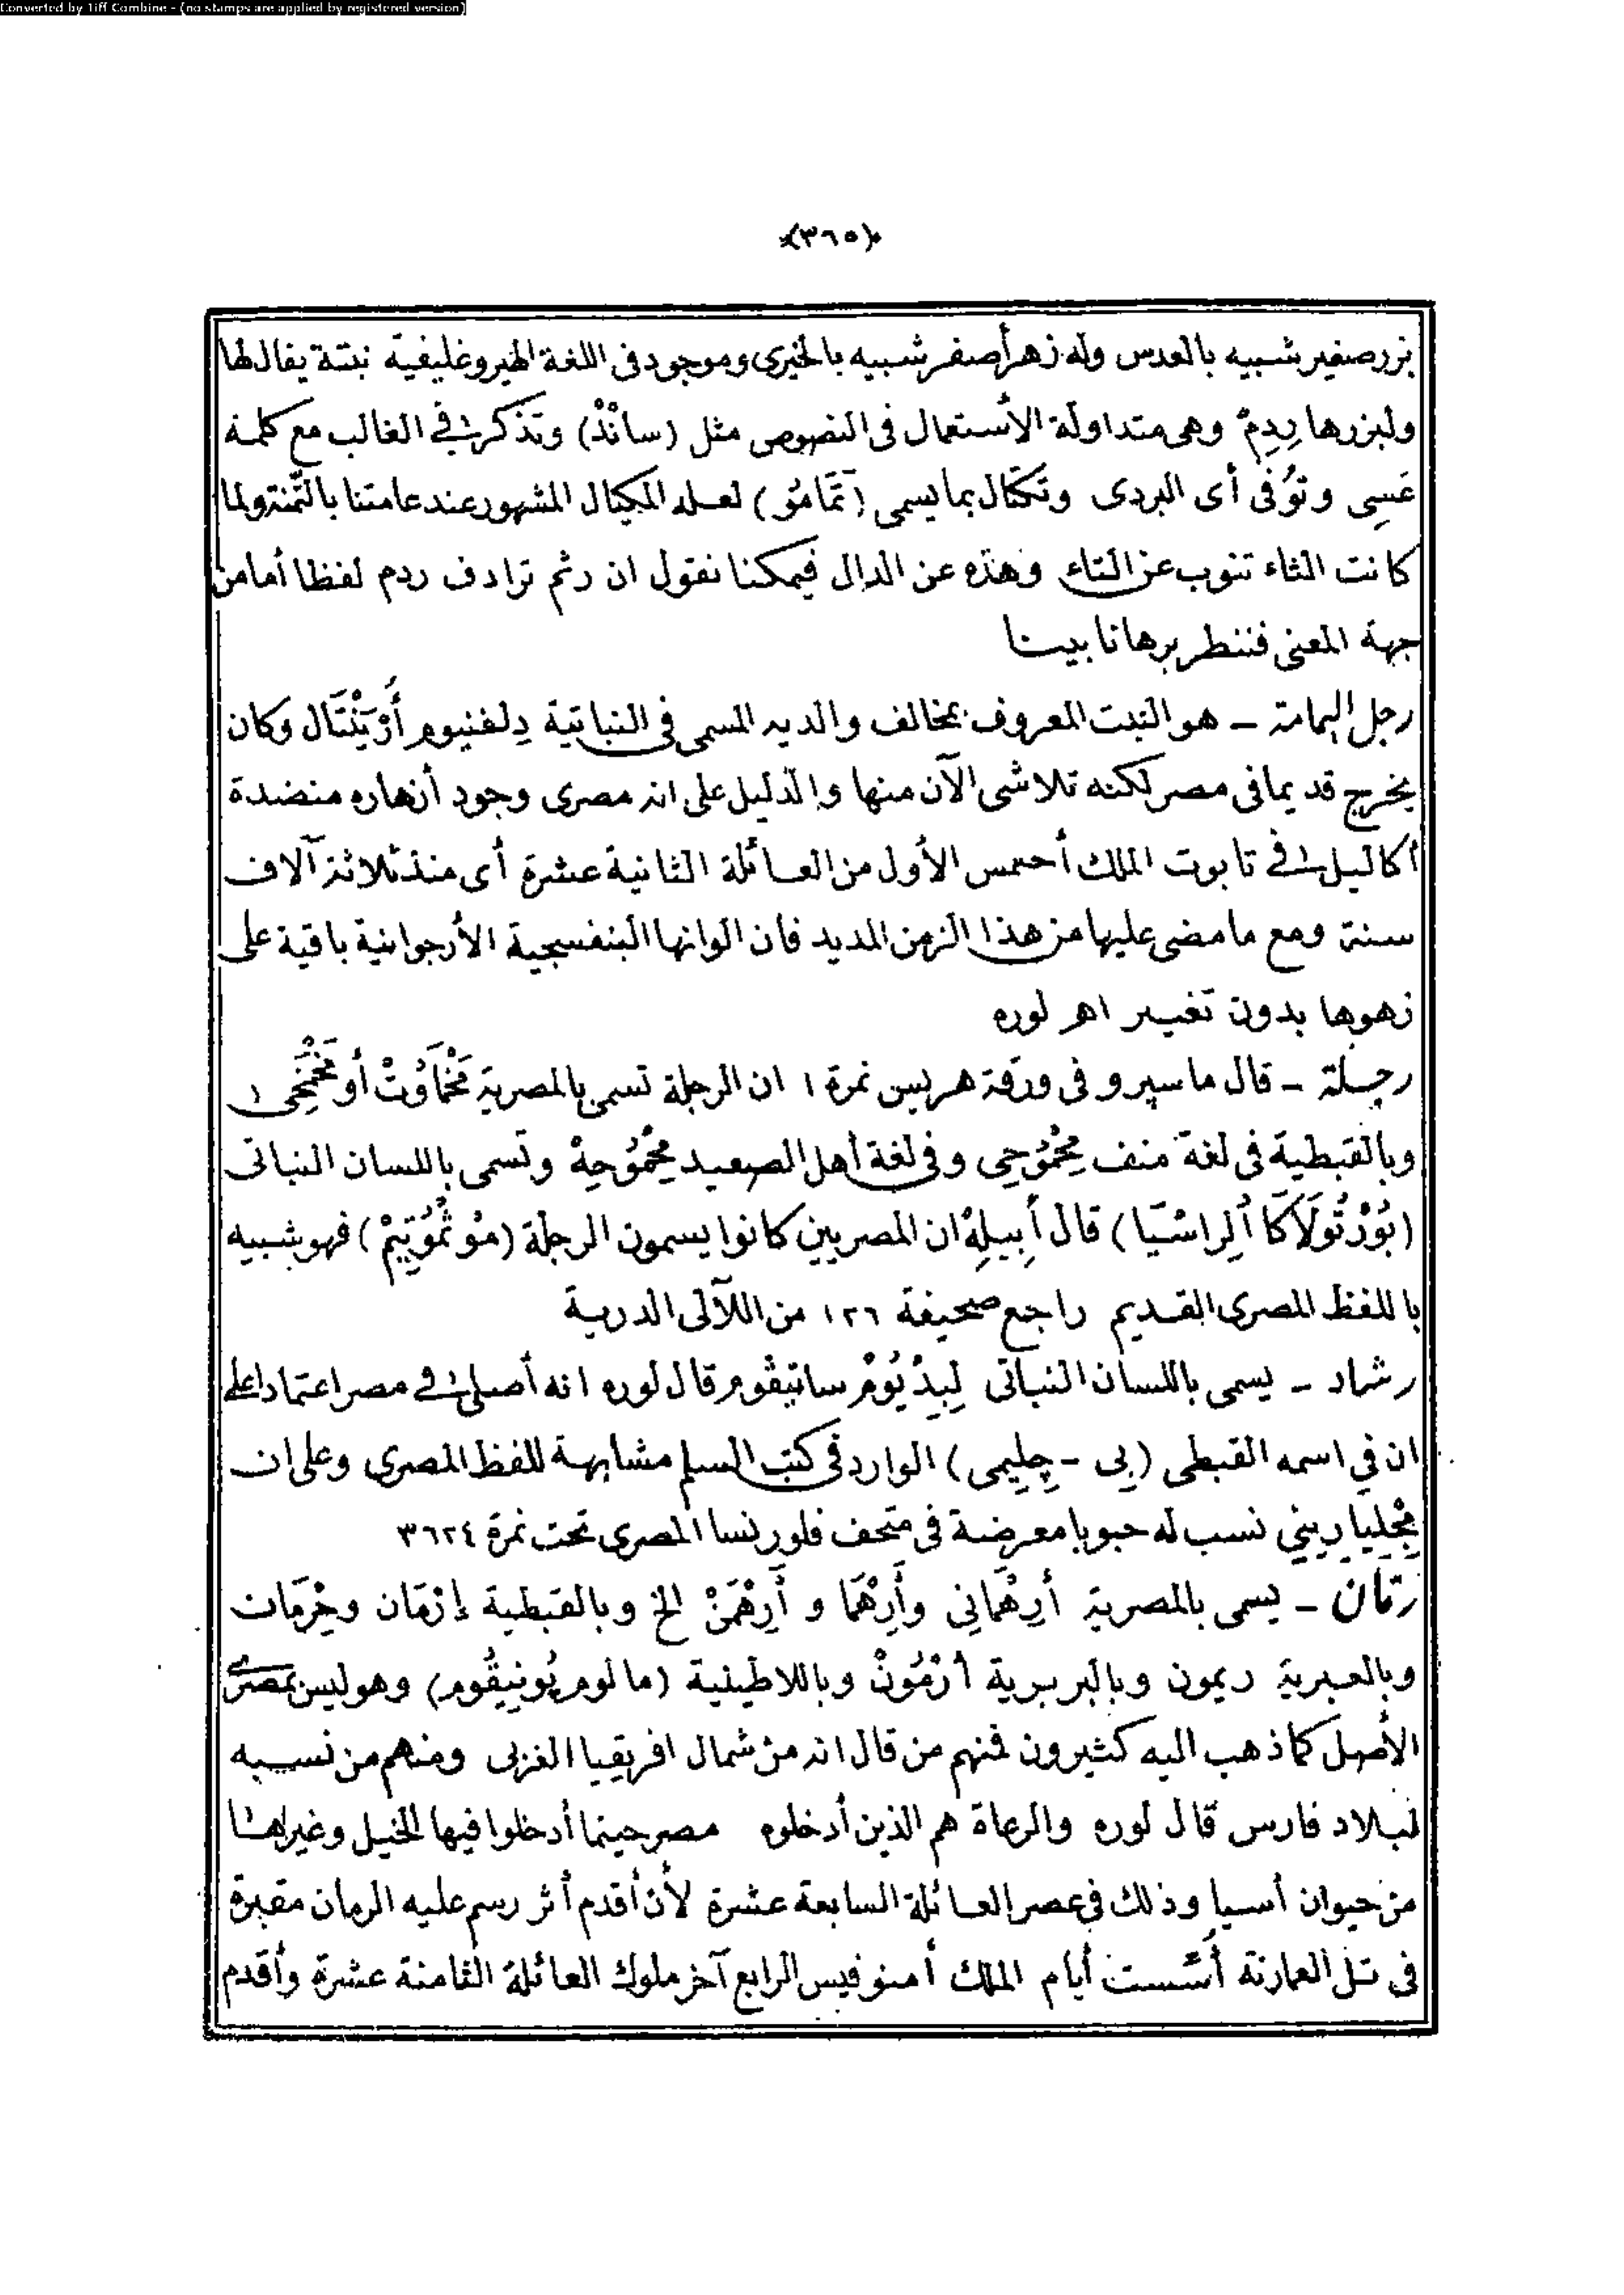 Converted by Tiff Combine - (no stamps are applied by registered version)
﴿٣٦٥﴾
بزر صغير شبيه بالعدس وله زهر أصفر شبيه بالخيرى وموجود فى اللغة الهيروغليفية نبتة يقال لها
ولبزرها رِدِمْ وهى متداولة الأستعمال فى النصوص مثل (سانْدْ) وتذكر فى الغالب مع كلمة
عَسِى وتوُفى أى البردى وتكتال بما يسمى (تَمَّامُو) لعله المكيال المشهور عند عامتنا بالتمنة ولما
كانت الثاء تنوب عن التاء وهذه عن الدال فيمكننا نقول ان رثم ترادف ردم لفظا أما من
جهة المعنى فننظر برهانا بينا
رجل اليمامة ـ هو النبت المعروف بمخالف والديه المسمى فى النباتية دِلفنيوم أُوْرِيَنْتَال وكان
يخرج قديما فى مصر لكنه تلاشى الآن منها والدليل على انه مصرى وجود أزهاره منضدة
أكاليل فى تابوت الملك أحمس الأول من العائلة الثانية عشرة أى منذ ثلاثة آلاف
سنة ومع ما مضى عليها من هذا الزمن المديد فان الوانها البنفسجية الأرجوانية باقية على
زهوها بدون تغيير اهـ لوره
رجلة ـ قال ماسپرو فى ورقة هريس نمرة ١ ان الرجلة تسمى بالمصرية مَخْمَاوُتْ أو
وبالقبطية فى لغة منف مِحْمُوحِى وفى لغة أهل الصعيد مِحْمُوحِهْ وتسمى باللسان النباتى
(بُوْرْتُولَاكَا أُلِراسْيَا) قال أَبِيلِهْ ان المصريين كانوا يسمون الرجلة (مُوثْمُوتِيمْ) فهو شبيه
باللفظ المصرى القديم راجع صحيفة ١٢٦ من اللآلى الدرية
رشاد ـ يسمى باللسان النباتى لِبِيدْيُومْ ساتيڤوم قال لوره انه أصلى فى مصر اعتمادا على
ان فى اسمه القبطى (بِى - چِلِيمى) الوارد فى كتب السلم مشابهة للفظ المصرى وعلى ان
مِجْلِيارِينِي نسب له حبوبا معرضة فى متحف فلورنسا المصرى تحت نمرة ٣٦٢٤
رمّان ـ يسمى بالمصرية أَرِهْمَانِي وأَرِهْمَا و أَرِهْمَنْ الخ وبالقبطية إِرْمَان وحِرْمَان
وبالعبرية ريمون وبالبربرية أَرْمُونْ وباللاطينية (مالوم پُونِيقُوم) وهو ليس بمصرى
الأصل كما ذهب اليه كثيرون فمنهم من قال انه من شمال افريقيا الغربى ومنهم من نسبه
لبلاد فارس قال لوره والرعاة هم الذين أدخلوه مصر حينما أدخلوا فيها الخيل وغيرها
من حيوان أسيا وذلك فى عصر العائلة السابعة عشرة لأن أقدم أثر رسم عليه الرمان مقبرة
فى تل العمارنة أسست أيام الملك أمنوفيس الرابع آخر ملوك العائلة الثامنة عشرة وأقدم